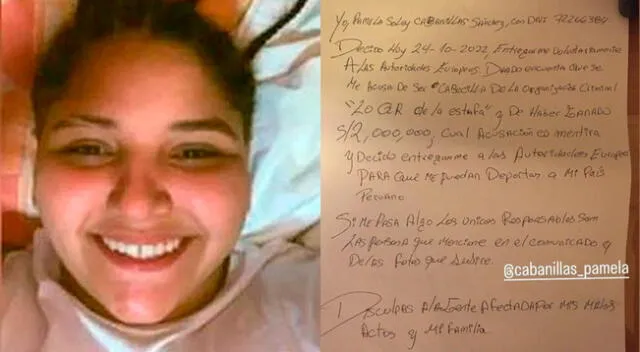 Yo, Pamela Soley CABANillAS Sánchez, con DNI 72266384
Deciso Hoy 24-10-2022, Entregarme Voluntariamente
A las Autoridades Europeas. Dando encuenta Que se
Me Acusa De Ser "CABECillA De La Organización Criminal
"LO QER de la estafa" y De HABER GANADO
S/2,000,000, cual Acusación es mentira
y Decido entregarme a las Autoridades Europeas
PARA Que ME puedan Deportar a Mi País
Peruano
SI ME PASA Algo Los Unicos Responsables Son
LAS PERSONA que Mencione en el comunicado y
De las foto que Subire.
@cabanillas_pamela
Disculpas A la Gente Afectada por Mis Malos
Actos y Mi Familia.